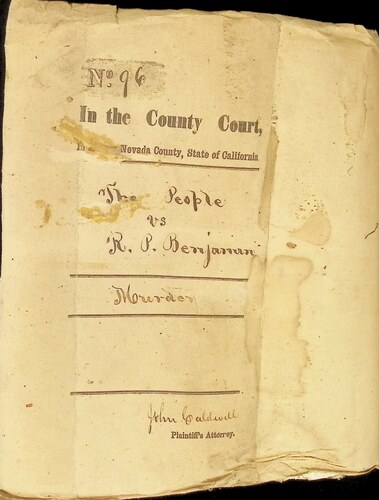 No. 96
In the County Court,
Nevada County, State of California
The People
vs
R. P. Benjamin
Murder
John Caldwell
Plaintiff's Attorney.